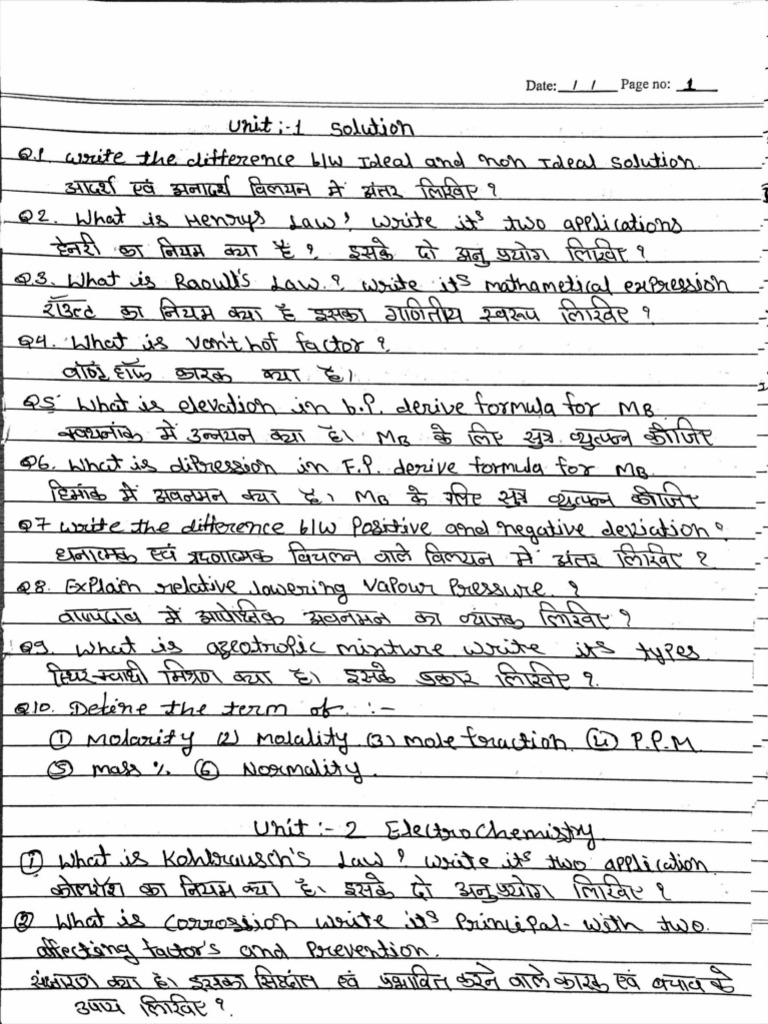 Date: / / Page no: 1
Unit:-1 Solution
Q.1. Write the difference b/w Ideal and non Ideal solution.
आदर्श एवं अनादर्श विलयन में अंतर लिखिए ?
Q2. What is Henrys Law? write its two applications
हेनरी का नियम क्या है ? इसके दो अनुप्रयोग लिखिए ?
Q.3. What is Raoult's Law.? write its mathametical expression
राउल्ट का नियम क्या है इसका गणितीय स्वरूप लिखिए ?
Q4. What is Von't hof factor ?
वॉण्ट हॉफ कारक क्या है।
Q5 What is elevation in b.p. derive formula for MB
क्वथनांक में उन्नयन क्या है। MB के लिए सुत्र व्युत्पन्न कीजिए
Q6. What is dipression in F.P. derive formula for MB.
हिमांक में अवनमन क्या है। MB के लिए सुत्र व्युत्पन्न कीजिए
Q7 write the difference b/w Positive and negative deviation?
धनात्मक एवं ऋणात्मक विचलन वाले विलयन में अंतर लिखिए ?
Q8. Explain relative lowering Vapour Pressure. ?
वाष्पदाब में आपेक्षिक अवनमन का व्यंजक लिखिए ?
Q9. What is azeotropic mixture write its types
स्थिर क्वाथी मिश्रण क्या है। इसके प्रकार लिखिए ?
Q10. Define the term of. :-
① Molarity (2) Molality (3) mole fraction (4) P.P.M
⑤ mass % ⑥ Normality.
Unit :- 2 ElectroChemistry
① What is Kohlrausch's Law? write its two application
कोलरॉश का नियम क्या है। इसके दो अनुप्रयोग लिखिए ?
② What is Corrossiion write its Principal- with two
affecting factor's and Prevention.
संक्षारण क्या है। इसका सिध्दांत एवं प्रभावित करने वाले कारक एवं बचाव के
उपाय लिखिए ?